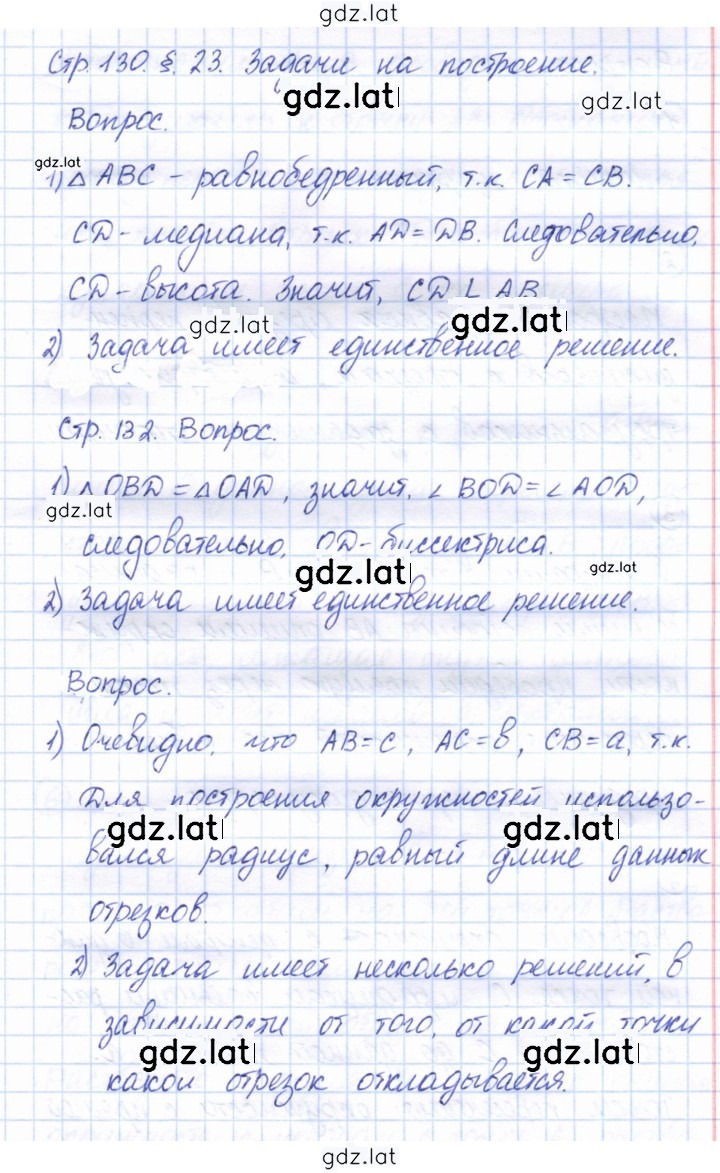 gdz.lat
Стр. 130. §. 23. Задачи на построение.
gdz.lat
gdz.lat
Вопрос.
gdz.lat
1) △ ABC – равнобедренный, т.к. CA = CB.
CD – медиана, т.к. AD = DB. Следовательно,
CD – высота. Значит, CD ⊥ AB
gdz.lat
gdz.lat
2) Задача имеет единственное решение.
Стр. 132. Вопрос.
1) △ OBD = △ OAD, значит, ∠ BOD = ∠ AOD,
gdz.lat
следовательно, OD – биссектриса.
gdz.lat
gdz.lat
2) Задача имеет единственное решение.
Вопрос.
1) Очевидно, что AB = c, AC = b, CB = a, т.к.
Для построения окружностей использо-
gdz.lat
gdz.lat
вался радиус, равный длине данных
отрезков.
2) Задача имеет несколько решений, в
зависимости от того, от какой точки
gdz.lat
gdz.lat
какой отрезок откладывается.
gdz.lat